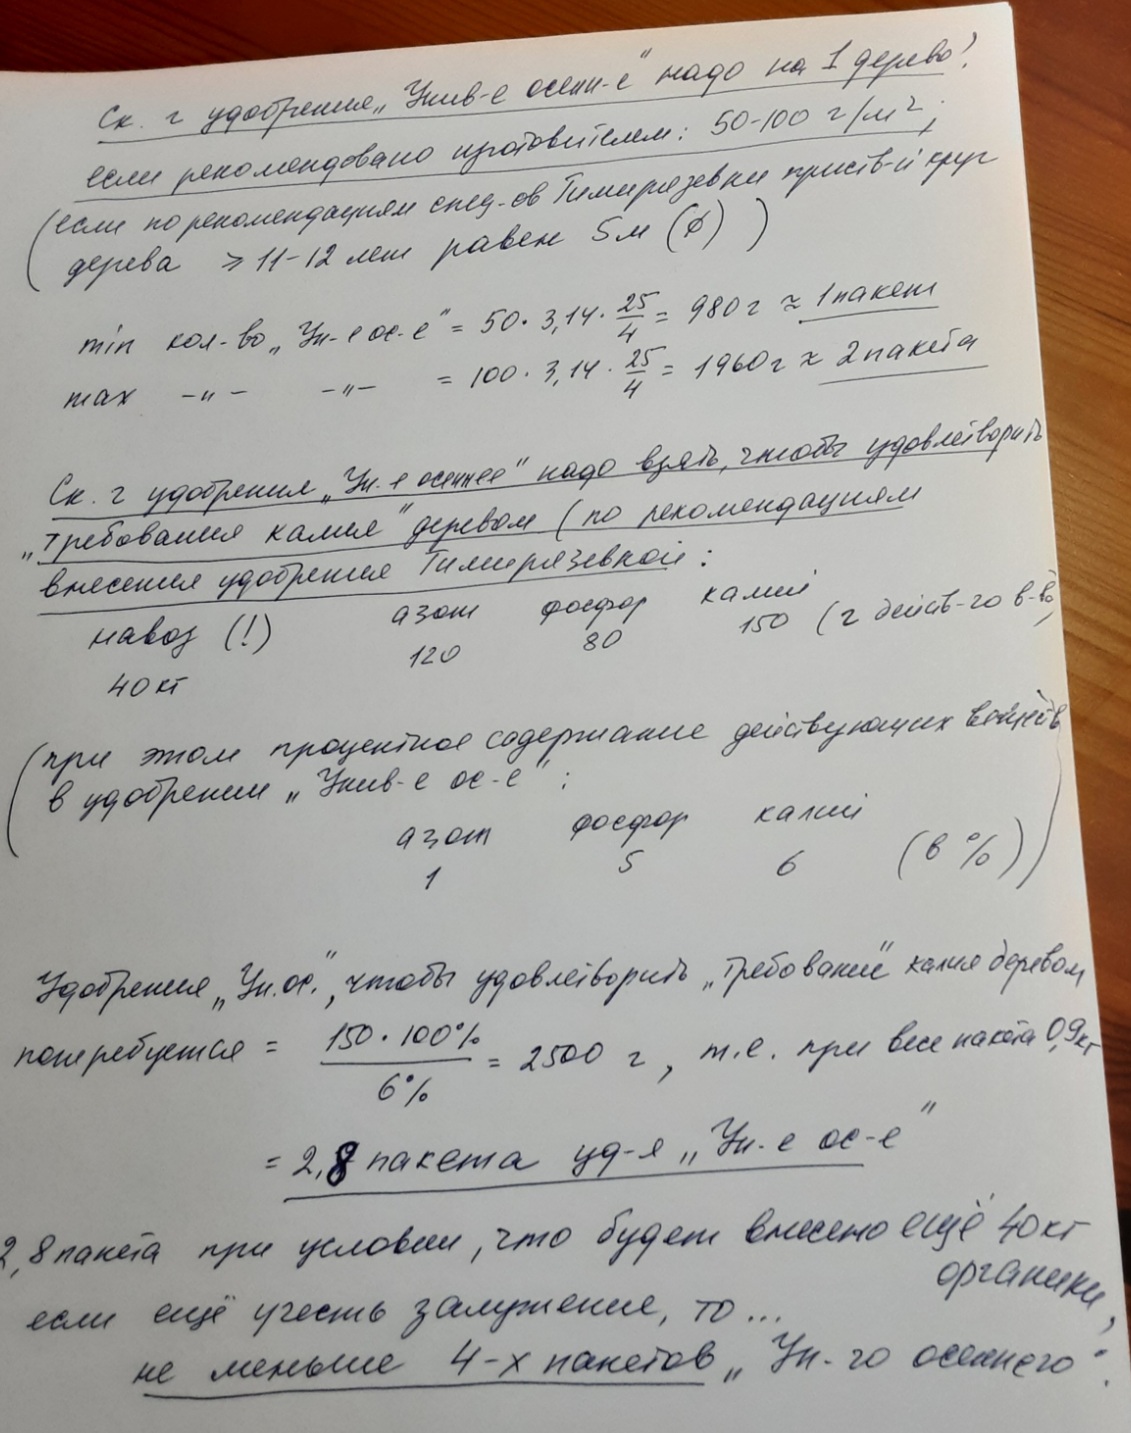 Ск. г удобрения „Унив-е осенн-е" надо на 1 дерево?
если рекомендовано изготовителем: 50-100 г/м²,
(если по рекомендациям спец-ов Тимирязевки приств-й круг
дерева ⩾ 11-12 лет равен 5м (⌀) )
min кол-во „Ун-е ос-е" = 50 · 3,14 · 25/4 = 980 г ≈ 1 пакет
max -„- -„- = 100 · 3,14 · 25/4 = 1960 г ≈ 2 пакета
Ск. г удобрения „Ун-е осеннее" надо взять, чтобы удовлетворить
„требования калия" деревом (по рекомендациям
внесения удобрения Тимирязевкой:
навоз (!) азот фосфор калий
40 кг 120 80 150 (г действ-го в-ва)
(при этом процентное содержание действующих веществ
в удобрении „Унив-е ос-е":
азот фосфор калий
1 5 6 (в %))
Удобрения „Ун.ос.", чтобы удовлетворить „требование" калия деревом
потребуется = 150 · 100% / 6% = 2500 г, т.е. при весе пакета 0,9кг
= 2,8 пакета уд-я „Ун-е ос-е"
2,8 пакета при условии, что будет внесено ещё 40 кг
органики,
если ещё учесть залужение, то...
не меньше 4-х пакетов „Ун-го осеннего".